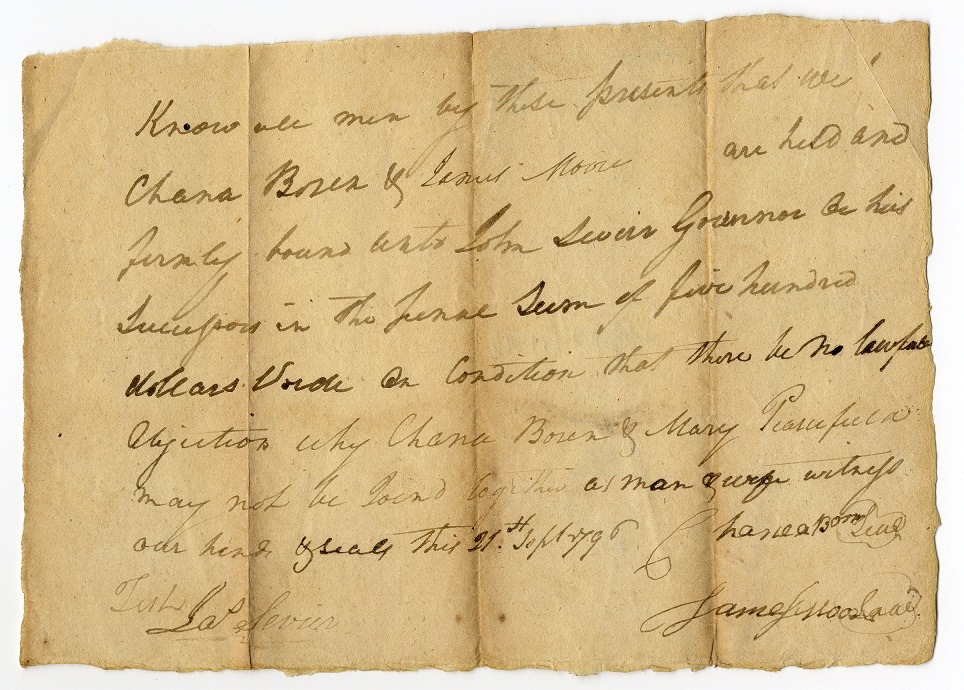 Know all men by these presents that we
Chana Boren & James Moore are held and
firmly bound unto John Sevier Governor & his
Successors in the penal Sum of five hundred
dollars Void on Condition that there be no lawful
objection why Chana Boren & Mary
may not be Joind together as man & wife witness
our hands & seals this 21.st Sept 1796 Chanea Boren Seal
Test
Jas Sevier James Moore Seal